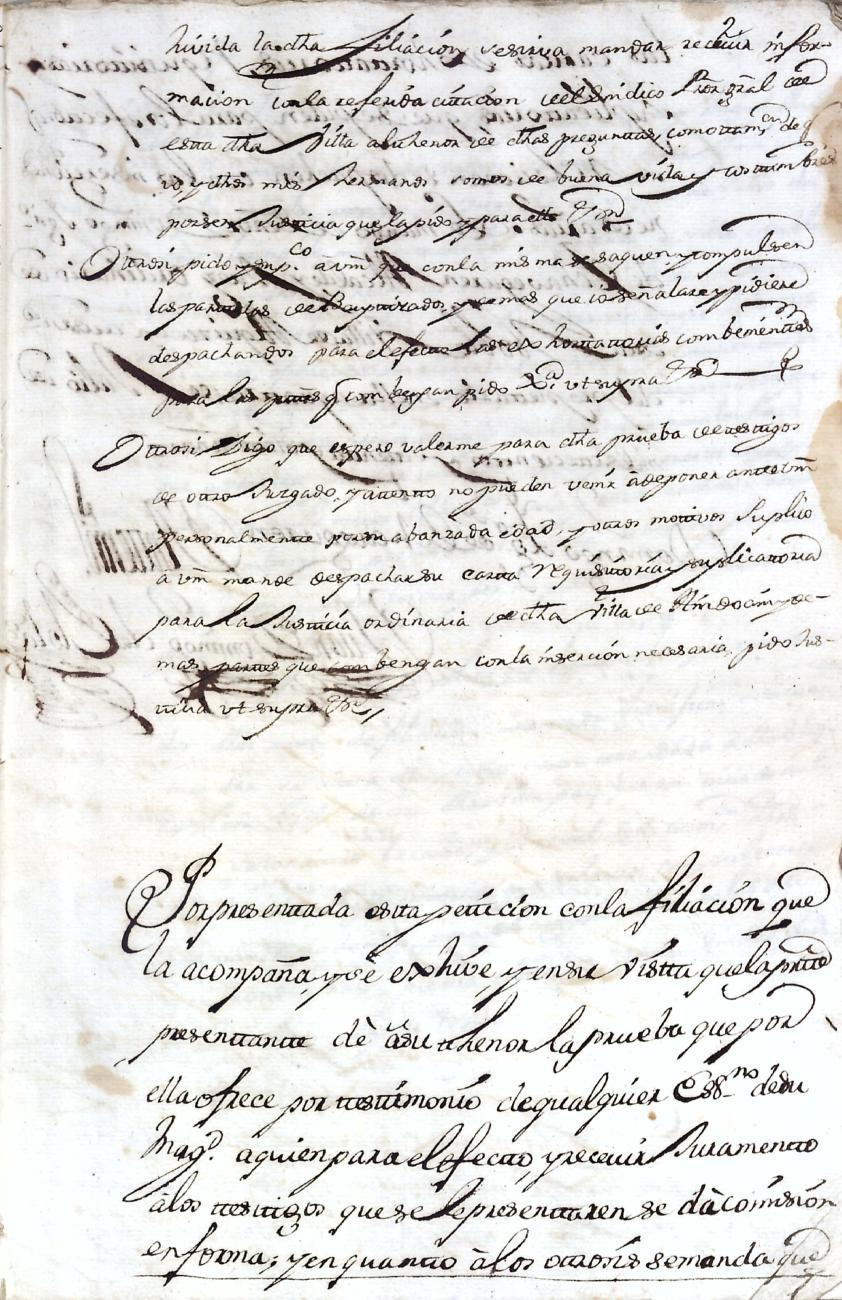 hivida la dha filiación se sirva mandar recevir infor-
macion con la referida citacion del sindico Pror gral de
esta dha Villa al thenor de dhas preguntas, como ttamvn de q
io, y dhos mis hermanos somos de buena vida y costtumbres
por ser Justicia que la pido y para ello &on
Ottrosi, pido y sup.co a vm que con la misma se saquen y compulsen
las parttidas de Baptizados, y demas que io señalare y pidiere
despachandos para el efecto las exhortatorias combenienttes
para las parttes q combengan pido Xa ut supra &
Ottrosi Digo que espero valerme para dha prueba de testigos
de ottro Juzgado, y attentto no pueden venir à deponer antte vm
personalmentte por su abanzada edad, y ottros mottivos Suplico
a vm mande despachar su cartta requisittoria y suplicattoria
para la Justticia ordinaria de dha Villa de y de-
mas parttes que combengan con la inserción necesaria, pido Jus-
tticia ut supra &a
Por presenttada estta petticion con la filiación que
la acompaña, y se exhive, y en su vistta que la partte
presenttantte dè à su thenor la prueba que por
ella ofrece por ttesttimonio de qualquier Essno de su
Magd. a quien para el efectto, y recevir Juramentto
à los ttesttigos que se le presenttaren se dà comisión
en forma; y en quantto à los ottrosis se manda que